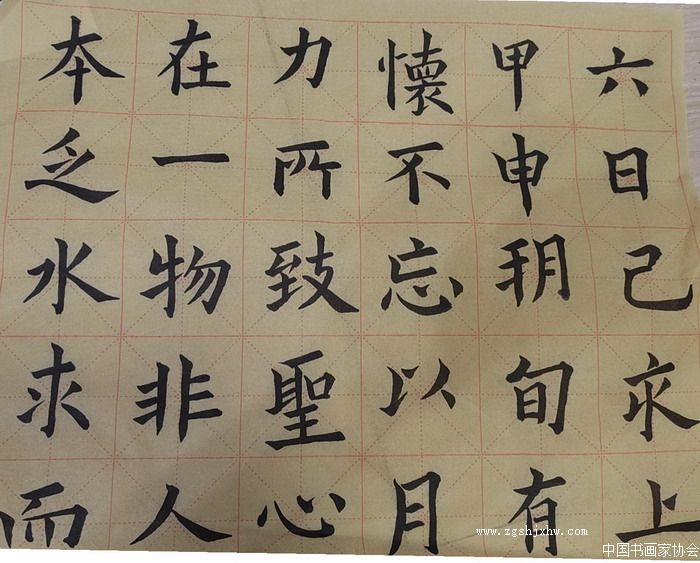 本乏水求而
在一物非人
力所致聖心
懷不忘以月
甲申朔旬有
六日己亥上
www.zgshjxhw.com
中国书画家协会